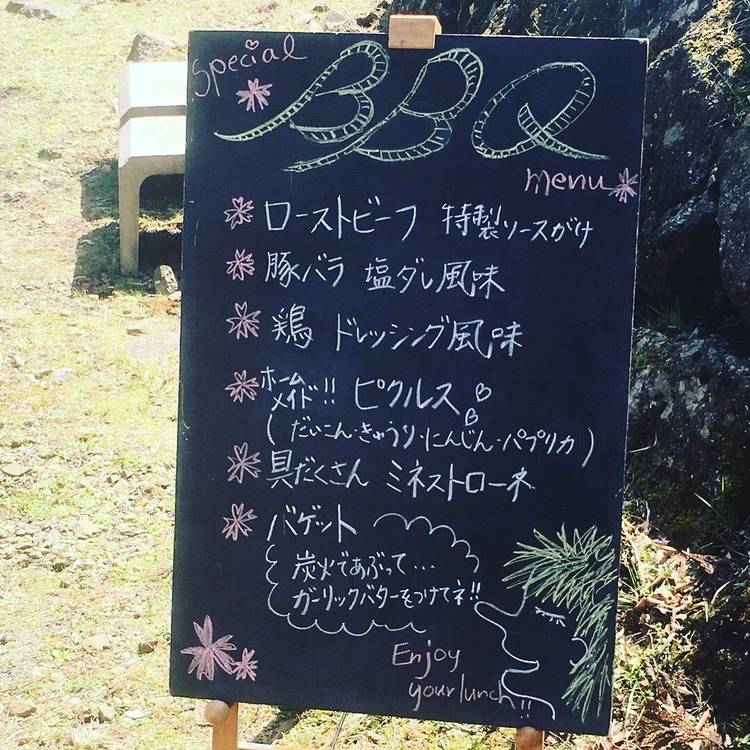 Special
BBQ
menu
ローストビーフ 特製ソースがけ
豚バラ 塩ダレ風味
鶏 ドレッシング風味
ホームメイド!! ピクルス
(だいこん・きゅうり・にんじん・パプリカ)
具だくさん ミネストローネ
バゲット
炭火であぶって…
ガーリックバターをつけてネ!!
Enjoy
your lunch!!